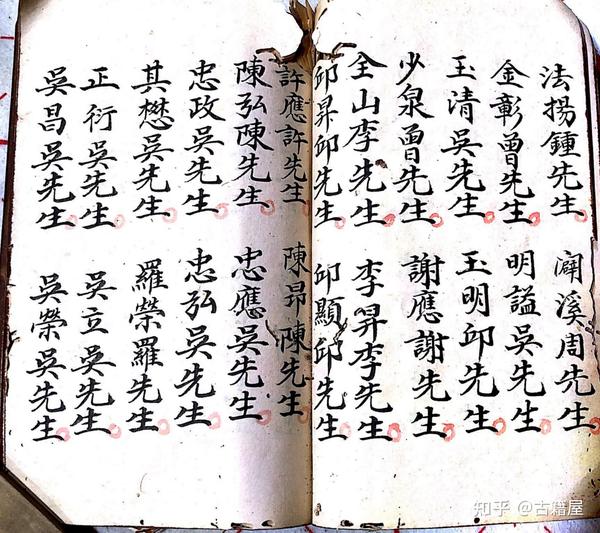 法揚鍾先生
溪周先生
金彰曾先生
明謚吳先生
玉清吳先生
玉明邱先生
少泉曾先生
謝應謝先生
全山李先生
李昇李先生
邱昇邱先生
邱顯邱先生
許應許先生
陳昂陳先生
陳弘陳先生
忠應吳先生
忠政吳先生
忠弘吳先生
其懋吳先生
羅榮羅先生
正衍吳先生
吳立吳先生
吳昌吳先生
吳榮吳先生
知乎 @古籍屋